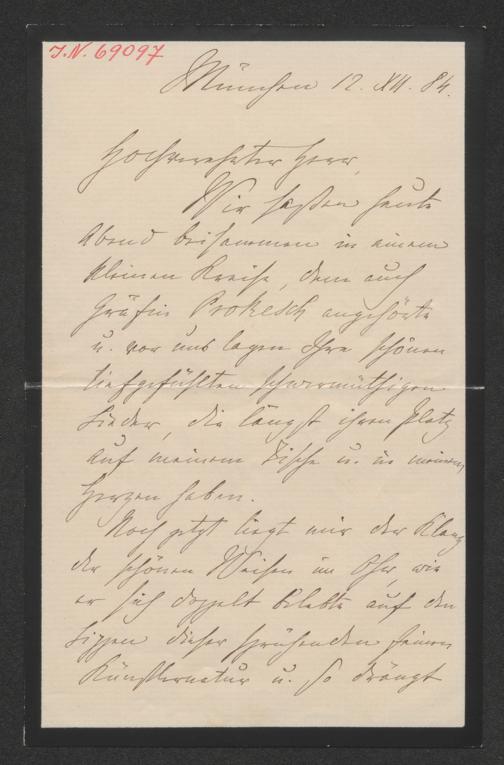 I.N. 69097
München 12. XII. 84.
Hochverehrter Herr,
Wir saßen heute
Abend beisammen in einem
kleinen Kreise, dem auch
Gräfin Prokesch angehörte
u. vor uns lagen Ihre schönen
tiefgefühlten schwermüthigen
Lieder, die längst ihren Platz
auf meinem Tische u. in meinem
Herzen haben.
Noch jetzt liegt mir der Klang
der schönen Weisen im Ohr, wie
er sich doppelt belebte auf den
Lippen dieser sprühenden feinen
Künstlernatur u. so drängt